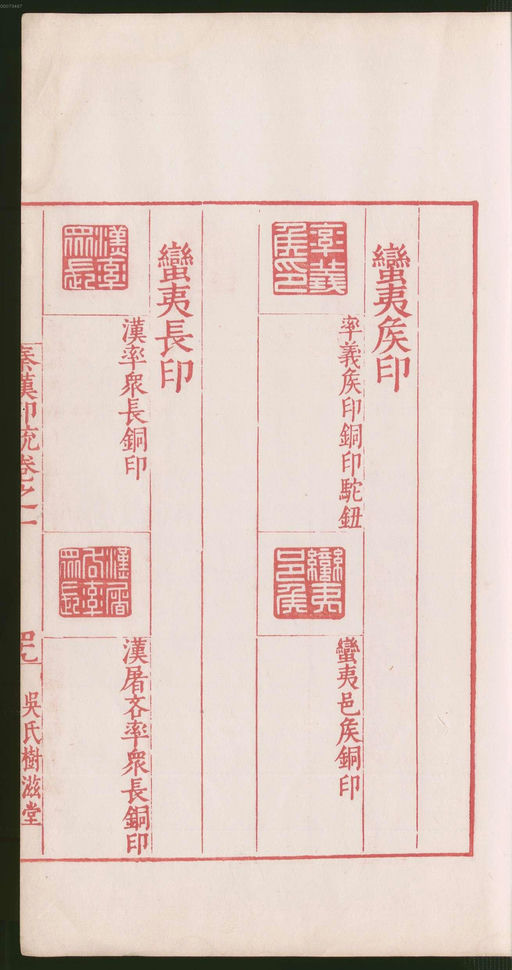 00073467
蠻夷矦印
率義矦印
率義矦印銅印駝鈕
蠻夷邑矦
蠻夷邑矦銅印
蠻夷長印
漢率衆長
漢率衆長銅印
漢屠各率衆長
漢屠各率衆長銅印
秦漢印統卷之一
吳氏樹滋堂